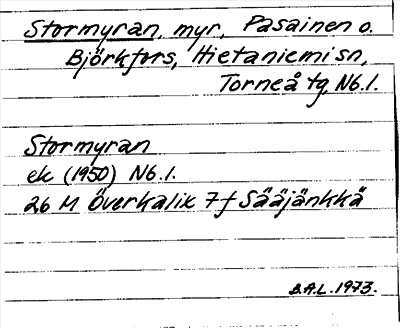 Stormyran, myr, Pasainen o.
Björkfors, Hietaniemi sn,
Torneå tg, Nb.l.
Stormyran
ek (1950) Nb.l.
26 M Överkalix 7f Sääjänkkä
B.A.L. 1973.